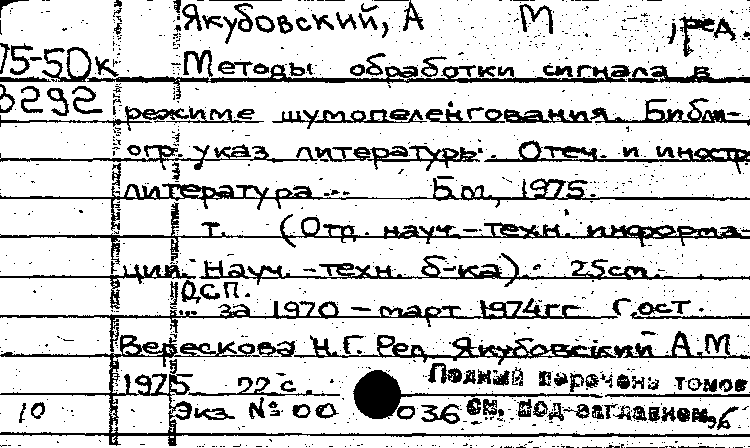 Якубовский, А М , ред.
75-50к Методы обработки сигнала в
3292 режиме шумопеленгования. Библи-
огр. указ. литературы. Отеч. и иностр
литература... Б.м., 1975.
т. (Отд. науч.-техн. информа-
ции. Науч.-техн. б-ка). 25см.
ДСП.
... за 1970 – март 1974гг Сост.
Верескова Н.Г. Ред Якубовский А.М
1975 22 с. Полный перечень томов
10 Экз № 00 036 см. под заглавием